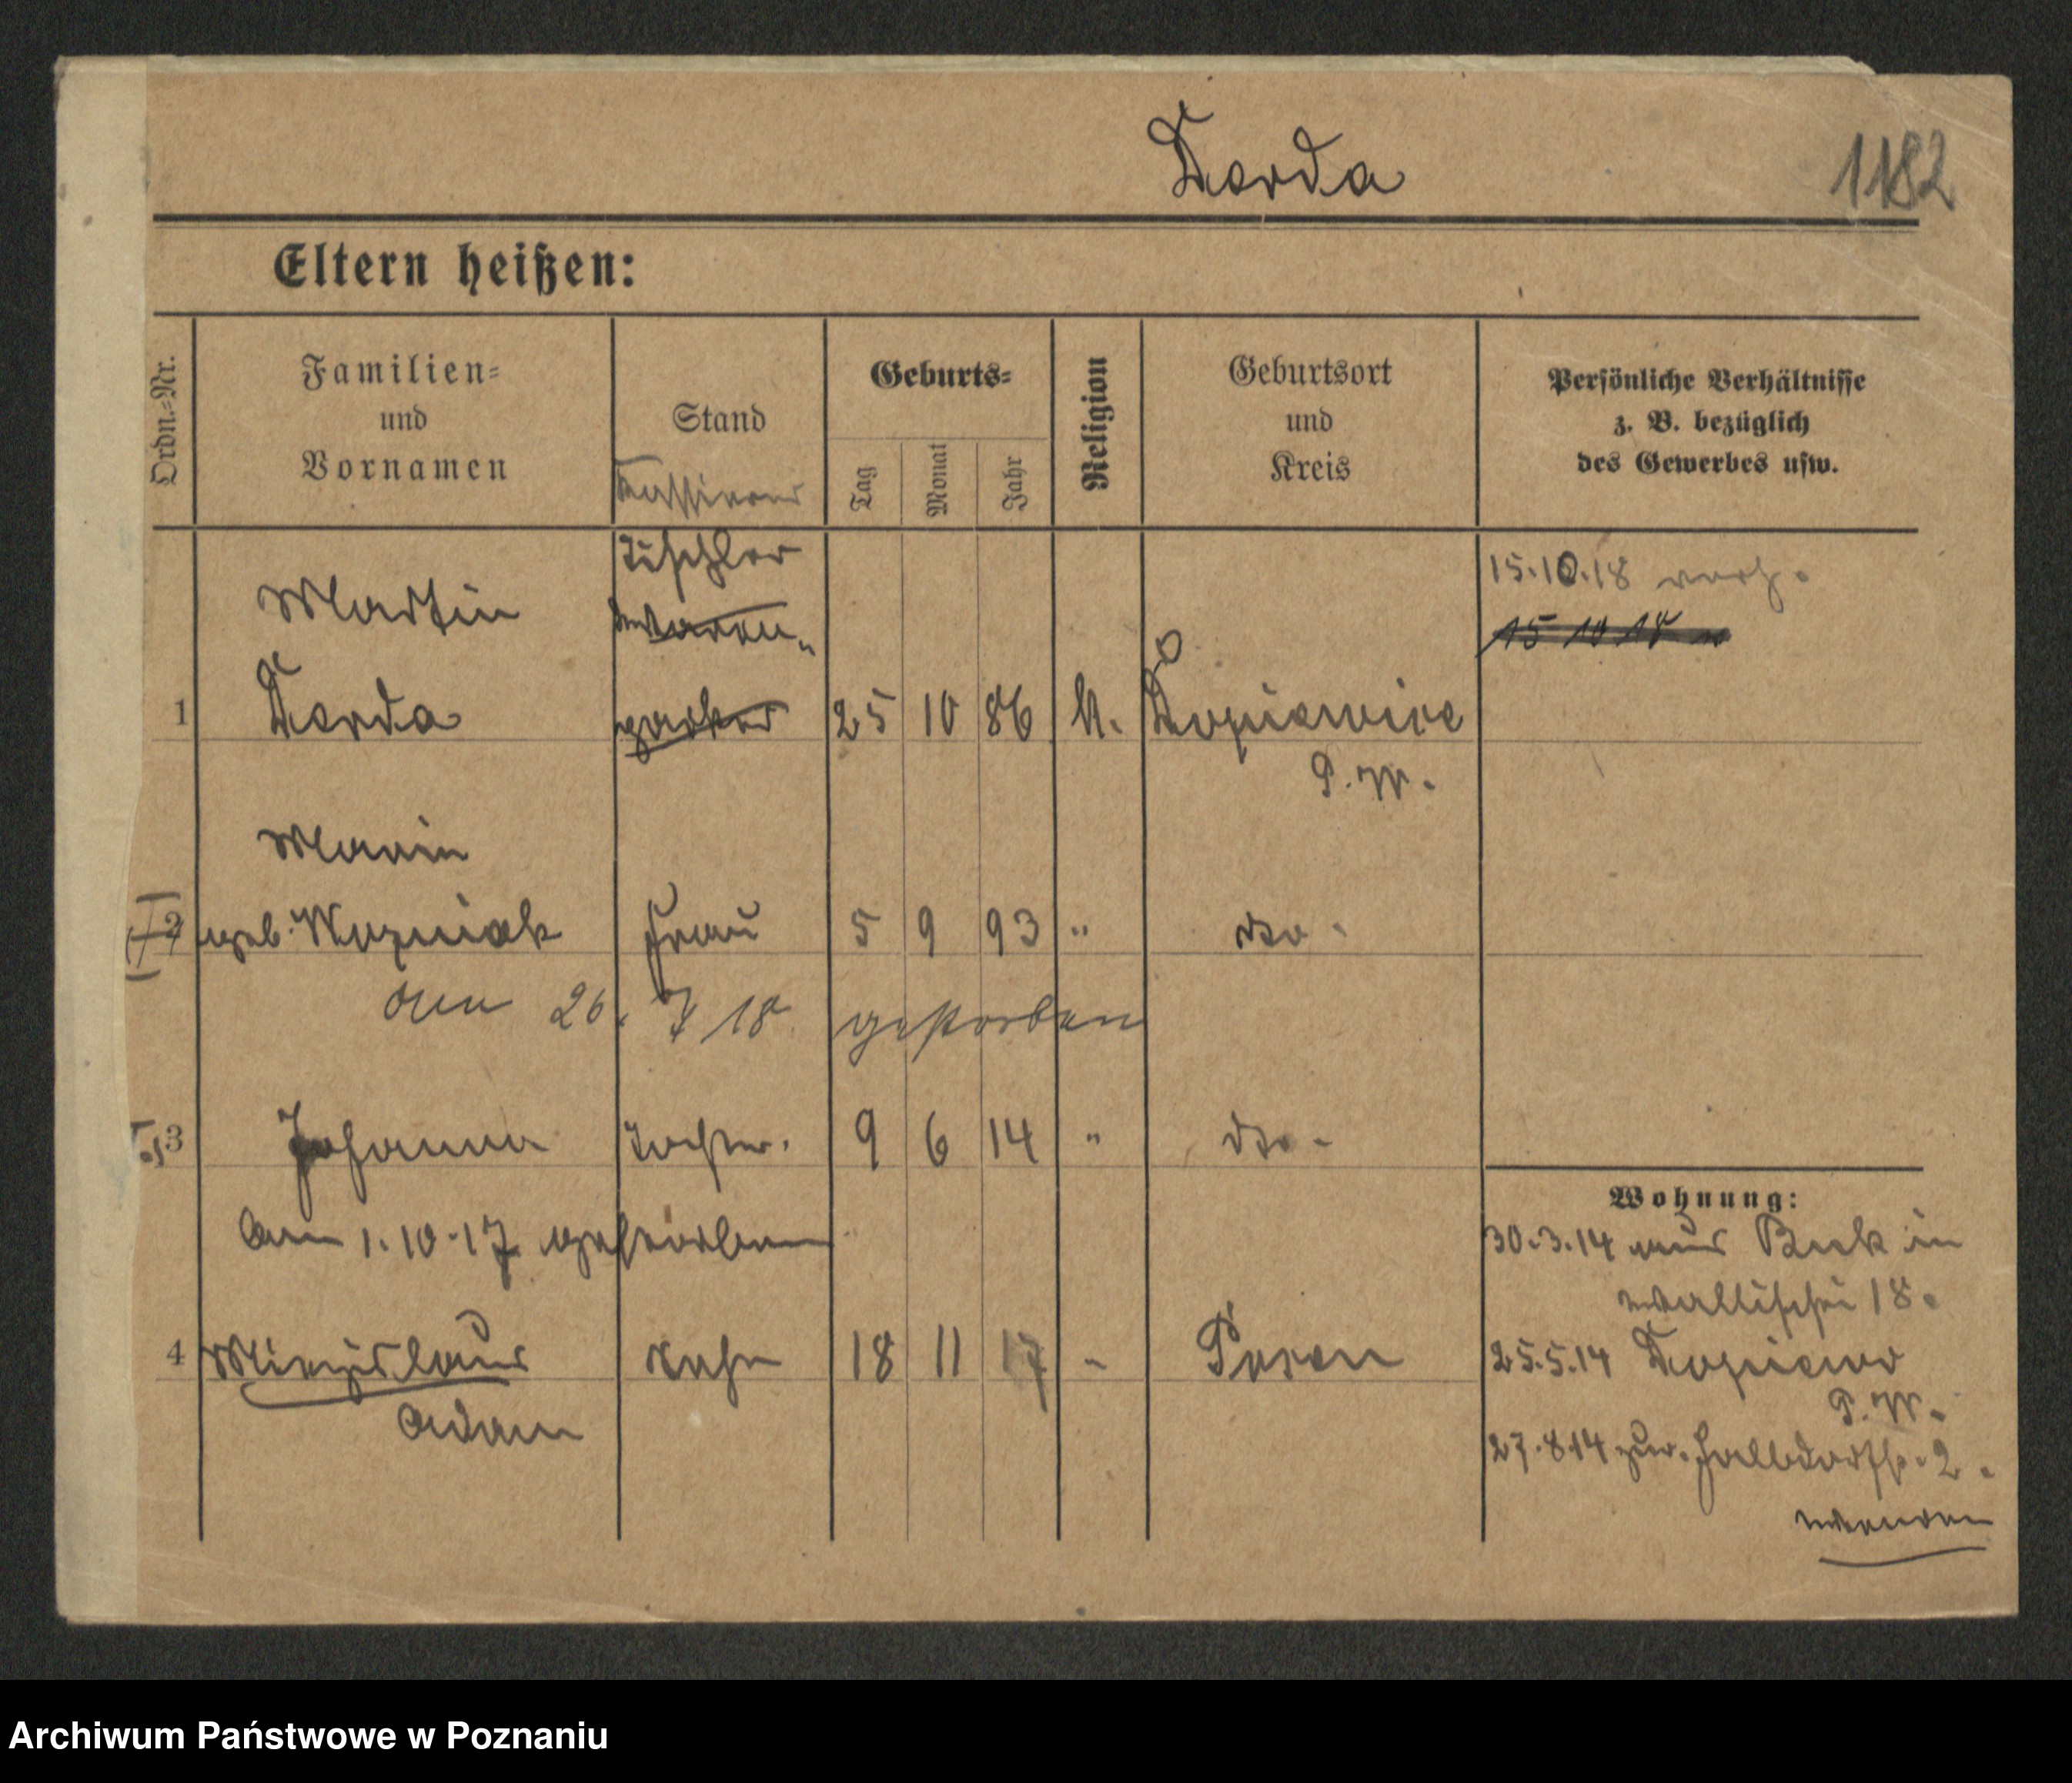 Dorda
1182
Eltern heißen:
Ordn.-Nr.
Familien-
und
Vornamen
Stand
Geburts-
Tag
Monat
Jahr
Religion
Geburtsort
und
Kreis
Persönliche Verhältnisse
z. B. bezüglich
des Gewerbes usw.
Tischler
Martin
15.10.18 verh.
15 10 18
1 Dorda 25 10 86 k.
P. W.
Marie
2 geb. Wozniak Frau 5 9 93 " dto.
den 26. 7 18 gestorben
3 Johanna Tochter. 9 6 14 " dto.
Am 1.10.17 gestorben
Wohnung:
30.3.14 aus Buk in
Wallischei 18.
4 Miezislaus Sohn 18 11 17 " Posen
Adam
25.5.14 Dopiewo
P. W.
27.8.14 zur. Halbdorfstr. 2.
wenden
Archiwum Państwowe w Poznaniu